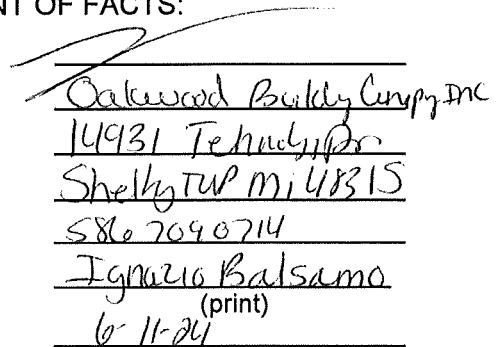 NT OF FACTS:
Oakwood Buildy Company Inc
14931 Technology Dr
Shelby TWP Mi 48315
586 7090714
Ignazio Balsamo
(print)
6-11-24